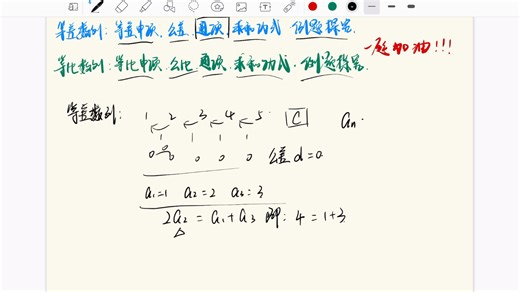 等差数列: 等差中项、公差、通项、求和公式、例题探究.
等比数列: 等比中项、公比、通项、求和公式、例题探究.
一起加油!!!
等差数列: 1 2 3 4 5 C an.
1 1 1 1
0 0 0 0 0 公差 d=0
a1=1 a2=2 a3=3
2a2 = a1+a3 即: 4=1+3